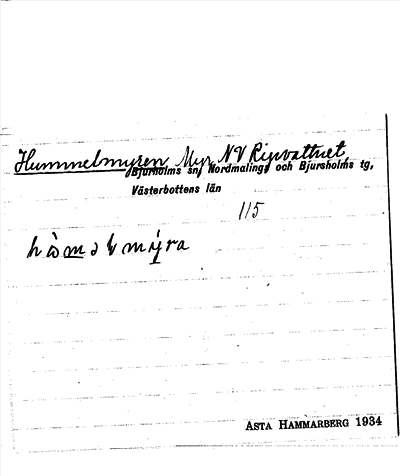 Hummelmyren, Myr NV Rigvattnet,
Bjurholms sn, Nordmalings och Bjursholms tg,
Västerbottens län
115
ASTA HAMMARBERG 1934